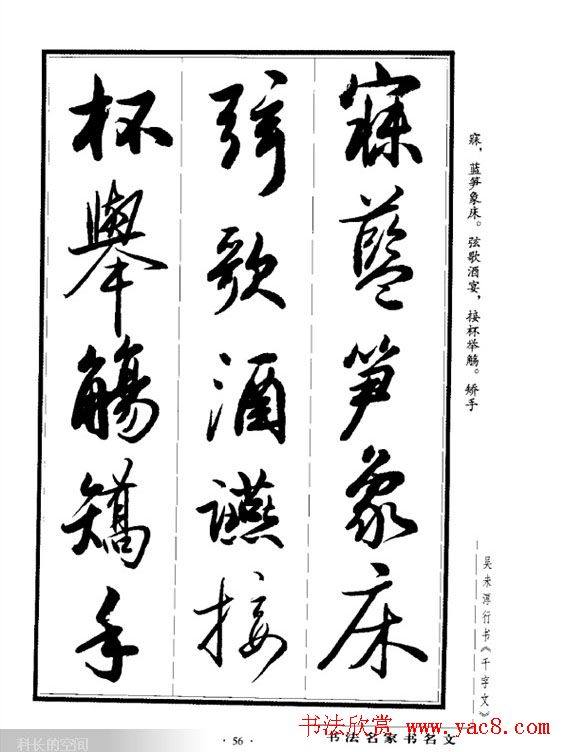 寐藍笋象床
弦歌酒讌接
杯舉觴矯手
寐，蓝笋象床。弦歌酒宴，接杯举觞。矫手
吴未淳行书《千字文》
·56·
书法名家书名文
书法欣赏 www.yac8.com
科长的空间